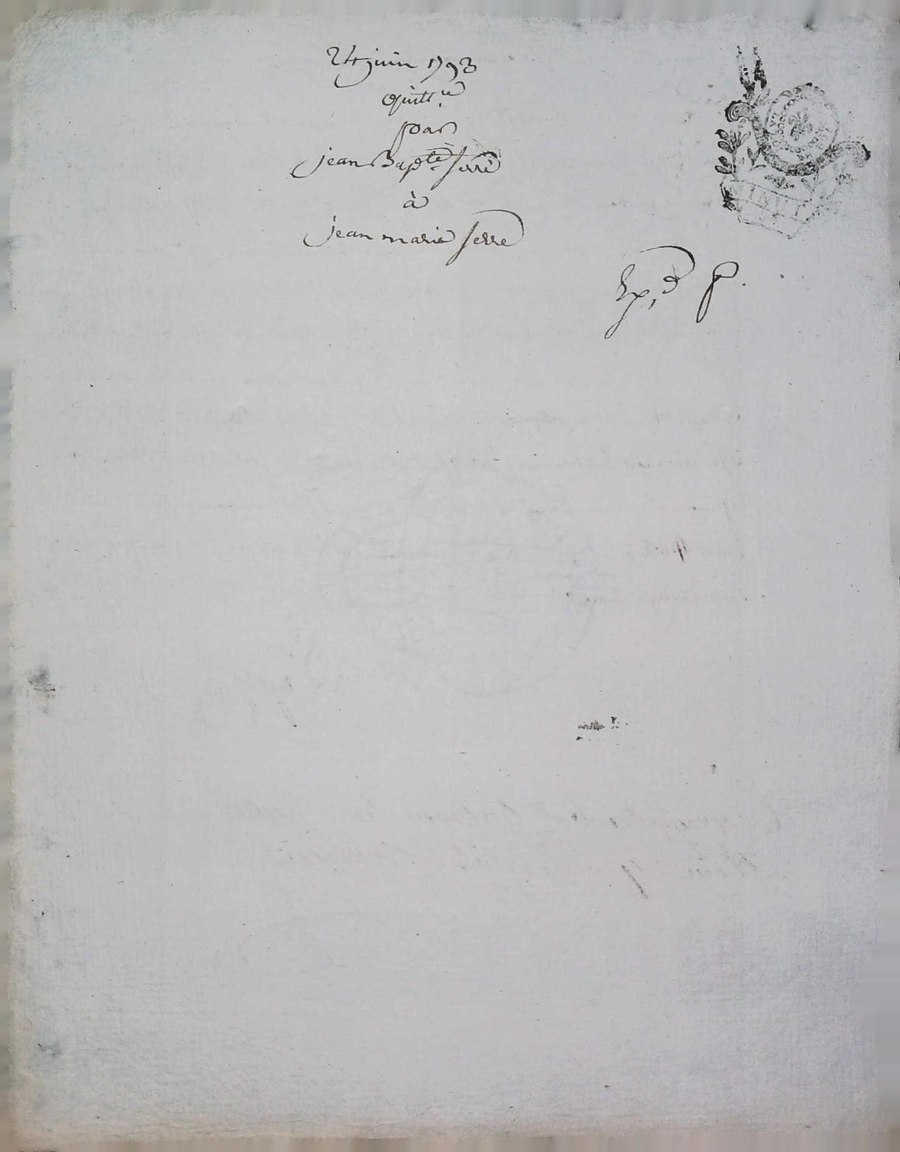 24 juin 1793
quitt.ce
par
jean Bapte. Serre
à
jean marie Serre
Exp.d